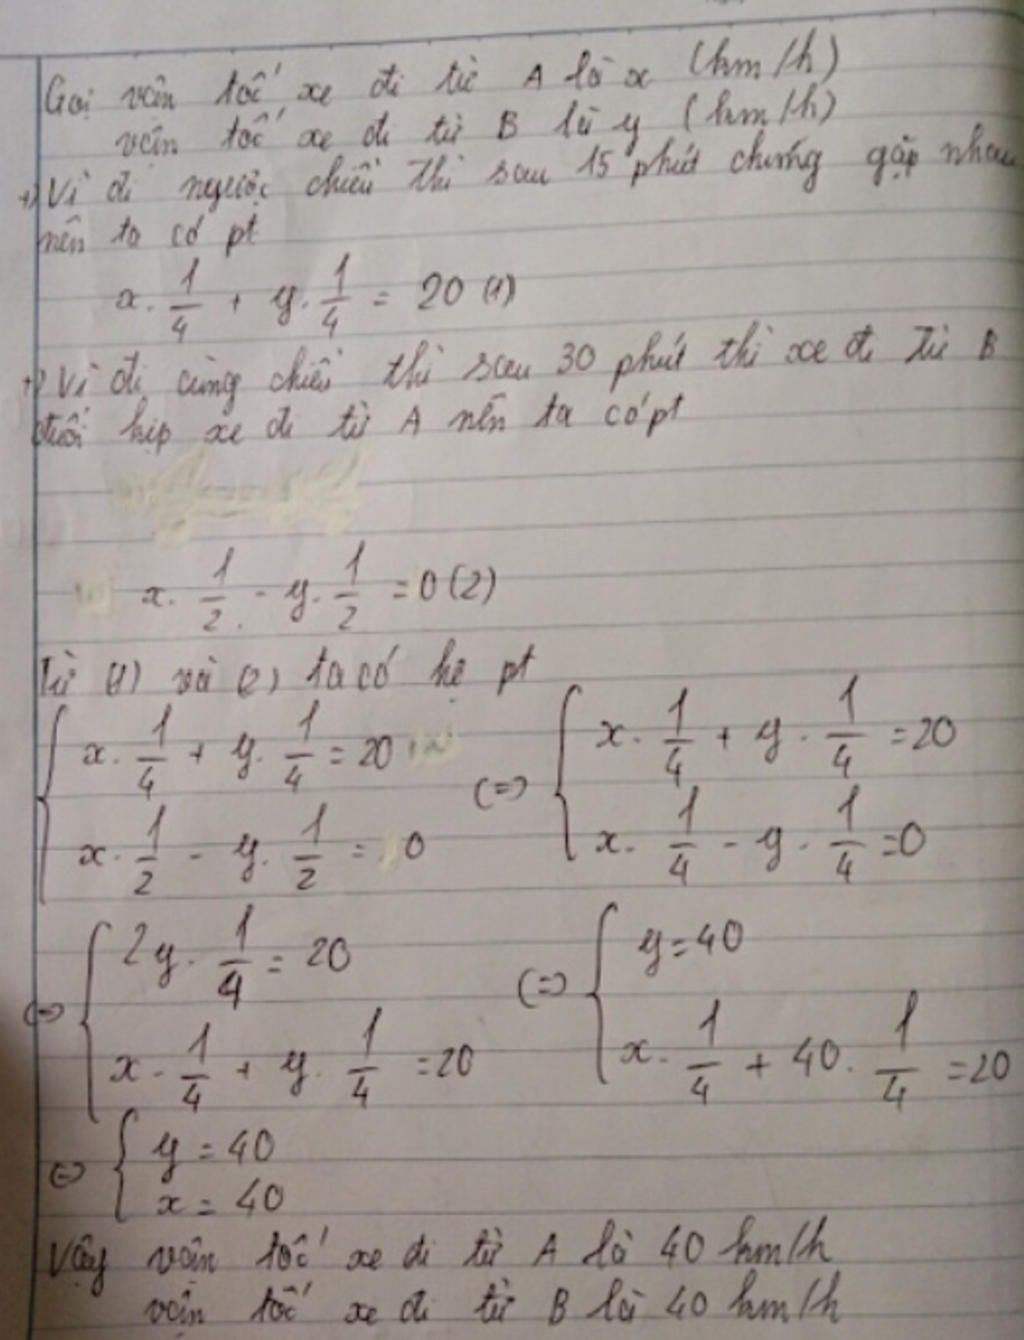 Gọi vận tốc xe đi từ A là x (km/h)
vận tốc xe đi từ B là y (km/h)
+) Vì đi ngược chiều thì sau 15 phút chúng gặp nhau
nên ta có pt
x. 1/4 + y. 1/4 = 20 (1)
+) Vì đi cùng chiều thì sau 30 phút thì xe đi từ B
đuổi kịp xe đi từ A nên ta có pt
x. 1/2 - y. 1/2 = 0 (2)
Từ (1) và (2) ta có hệ pt
{ x. 1/4 + y. 1/4 = 20 (=) { x. 1/4 + y. 1/4 = 20
x. 1/2 - y. 1/2 = 0 x. 1/4 - y. 1/4 = 0
(=) { 2y. 1/4 = 20 (=) { y = 40
x. 1/4 + y. 1/4 = 20 x. 1/4 + 40. 1/4 = 20
(=) { y = 40
x = 40
Vậy vận tốc xe đi từ A là 40 km/h
vận tốc xe đi từ B là 40 km/h